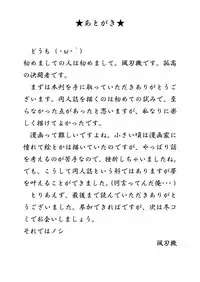 ★あとがき★
どうも(・ω・`)
初めましての人は初めまして。颯刃機です。孤高
の決闘者です。
まずは本列を手に取っていただきありがとうござ
います。同人誌を描くのは初めての試みで、至ら
なかった点があったと思いますが、私なりに楽し
く描けてよかったです。
漫画って難しいですよね。小さい頃は漫画家に
憧れて絵とかは描いていたのですが、やっぱり話
を考えるのが苦手なので、挫折しちゃいましたね。
でも、こうして同人誌という形ではありますが夢
を叶えることができました。(何言ってんだ俺・・・)
とりあえず、最後まで読んでいただきありがと
うございました。参加できればですが、次は冬コ
ミでお会いしましょう。
それではノシ